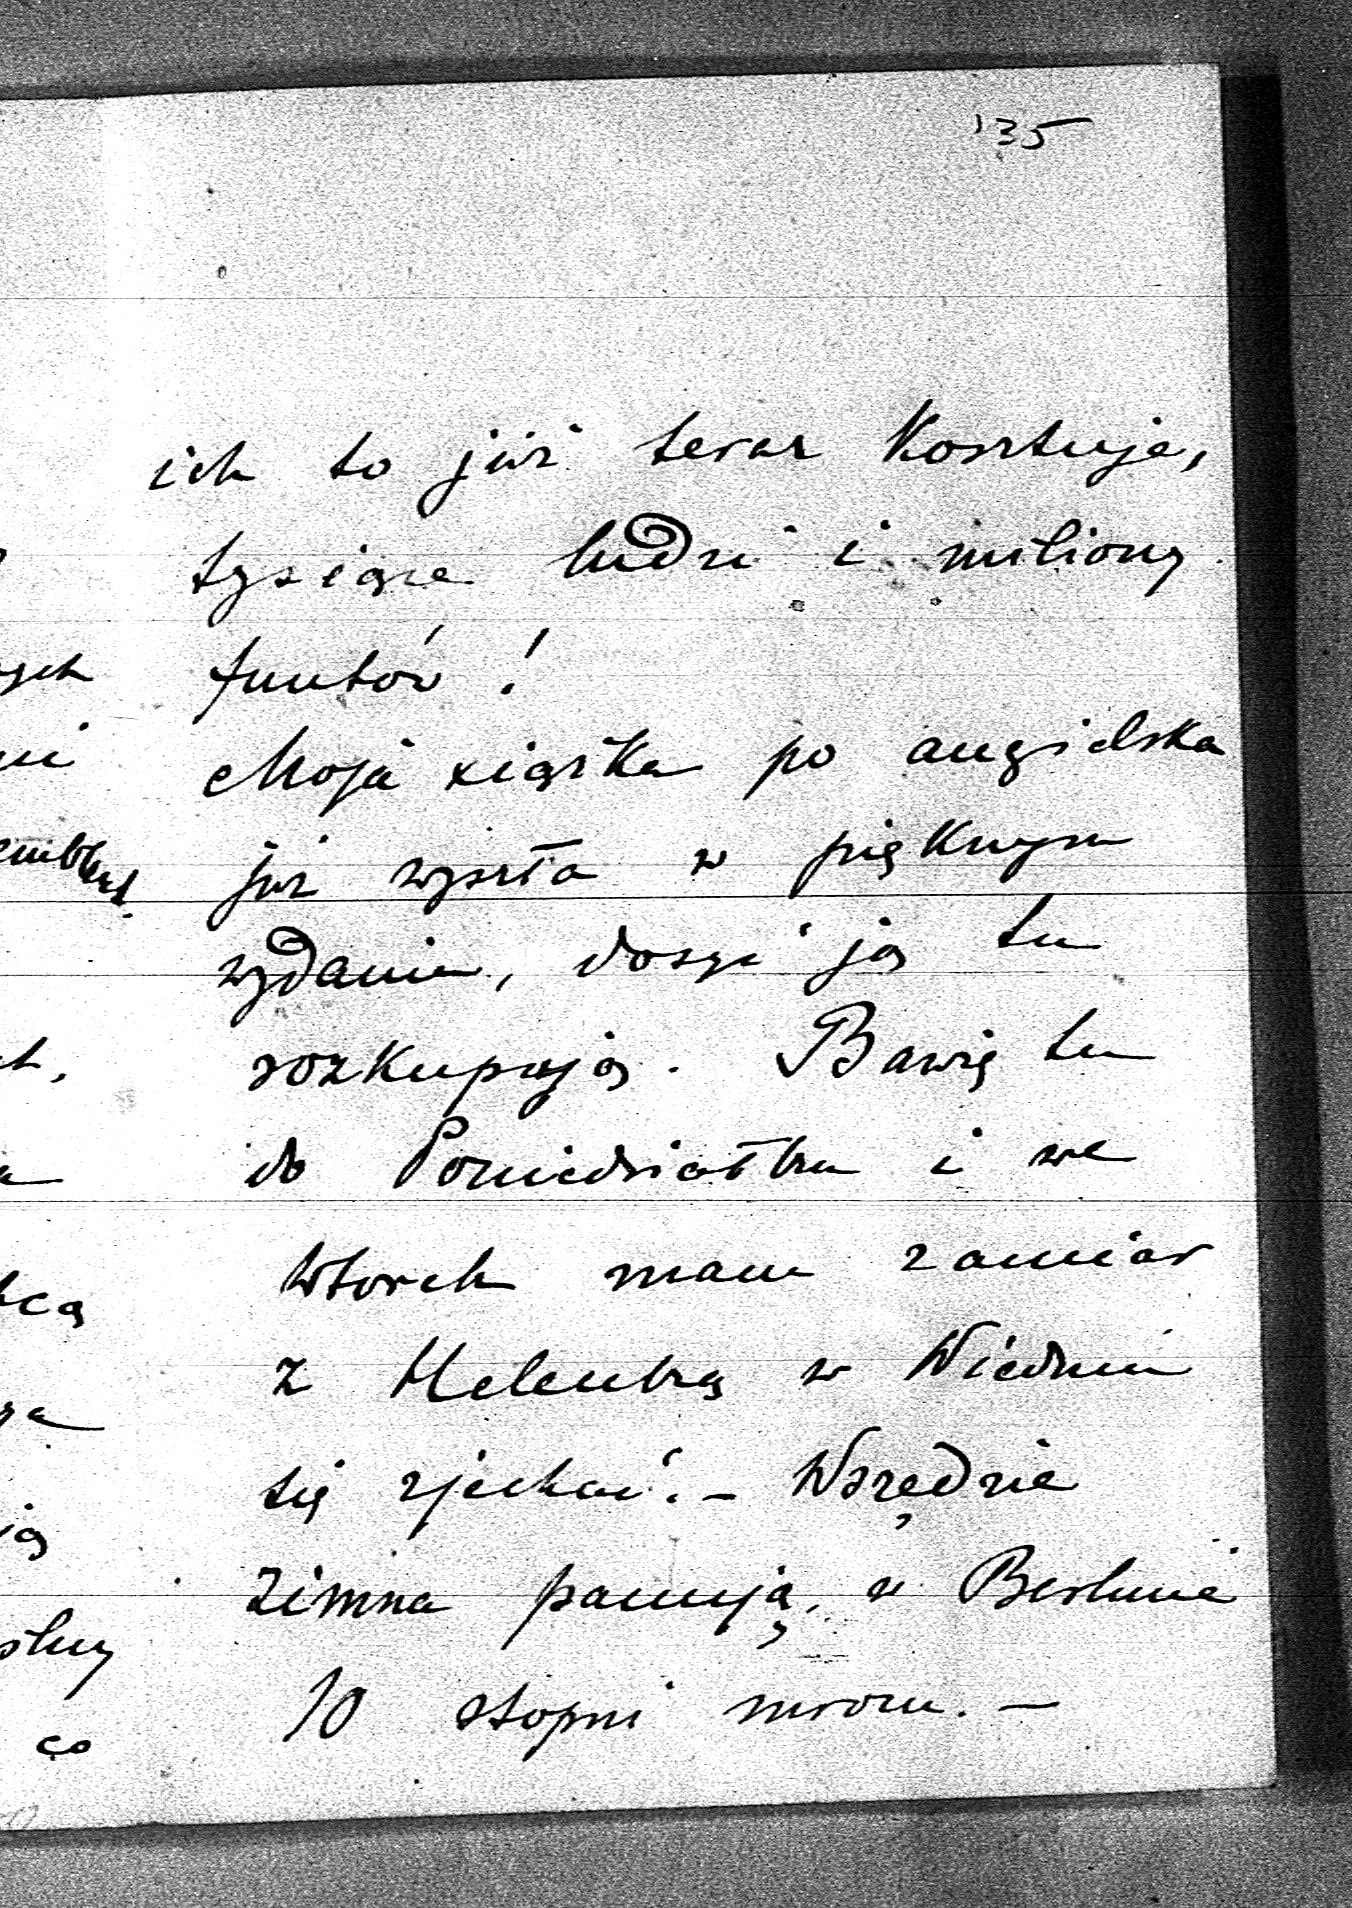 135
ich to już teraz kosztuje,
tysiące ludzi i miliony
funtów!
Moja xiążka po angielsku
już wyszła w pięknym
wydaniu, dosyć ją tu
rozkupują. Bawię tu
do Poniedziałku i we
Wtorek mam zamiar
z Helenką w Wiedniu
się zjechać. – Wszędzie
zimna panują, w Berlinie
10 stopni mrozu. –